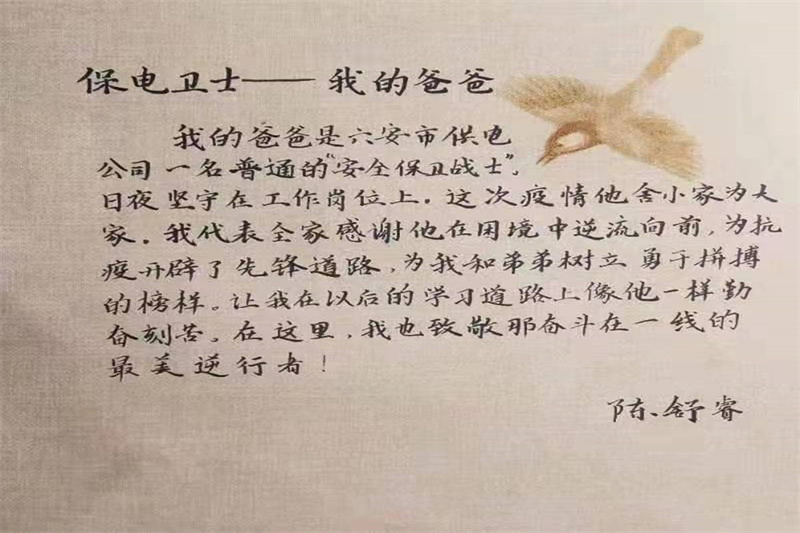 保电卫士——我的爸爸
我的爸爸是六安市供电
公司一名普通的“安全保卫战士”，
日夜坚守在工作岗位上。这次疫情他舍小家为大
家。我代表全家感谢他在困境中逆流向前，为抗
疫开辟了先锋道路，为我和弟弟树立勇于拼搏
的榜样。让我在以后的学习道路上像他一样勤
奋刻苦。在这里，我也致敬那奋斗在一线的
最美逆行者！
陈舒睿